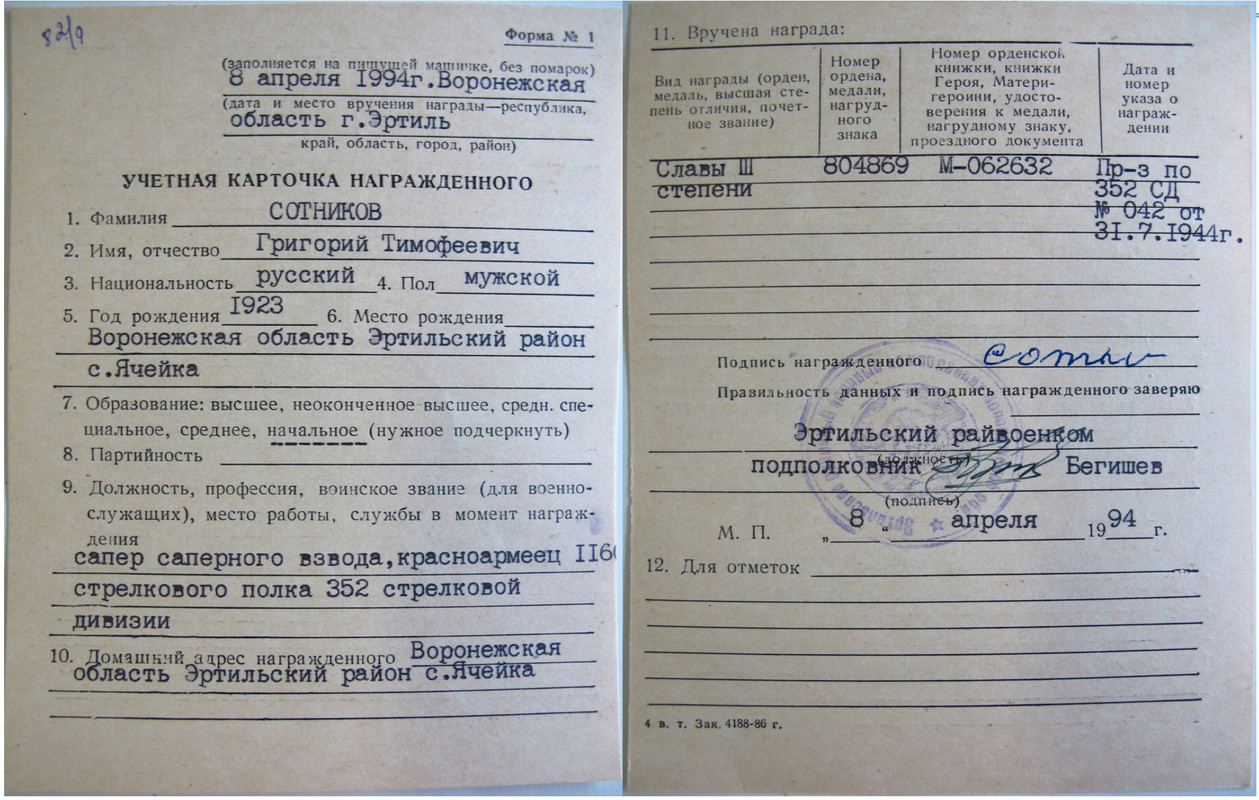 82/9
Форма № 1
(заполняется на пишущей машинке, без помарок)
8 апреля I994г.Воронежская
(дата и место вручения награды—республика,
область г.Эртиль
край, область, город, район)
УЧЕТНАЯ КАРТОЧКА НАГРАЖДЕННОГО
1. Фамилия СОТНИКОВ
2. Имя, отчество Григорий Тимофеевич
3. Национальность русский 4. Пол мужской
5. Год рождения I923 6. Место рождения
Воронежская область Эртильский район
с.Ячейка
7. Образование: высшее, неоконченное высшее, средн. спе-
циальное, среднее, начальное (нужное подчеркнуть)
8. Партийность
9. Должность, профессия, воинское звание (для военно-
служащих), место работы, службы в момент награж-
дения
сапер саперного взвода,красноармеец II60
стрелкового полка 352 стрелковой
дивизии
10. Домашний адрес награжденного Воронежская
область Эртильский район с.Ячейка
11. Вручена награда:
Вид награды (орден, медаль, высшая сте-
пень отличия, почет-
ное звание)
Номер
ордена,
медали,
нагруд-
ного
знака
Номер орденской
книжки, книжки
Героя, Матери-
героини, удосто-
верения к медали,
нагрудному знаку,
проездного документа
Дата и
номер
указа о
награж-
дении
Славы Ш 804869 М-062632 Пр-з по
степени 352 СД
№ 042 от
3I.7.I944г.
Подпись награжденного Сотни
Правильность данных и подпись награжденного заверяю
Эртильский райвоенком
(должность)
подполковник Бегишев
(подпись)
М. П. „ 8 “ апреля 1994 г.
12. Для отметок
4 в. т. Зак. 4188-86 г.